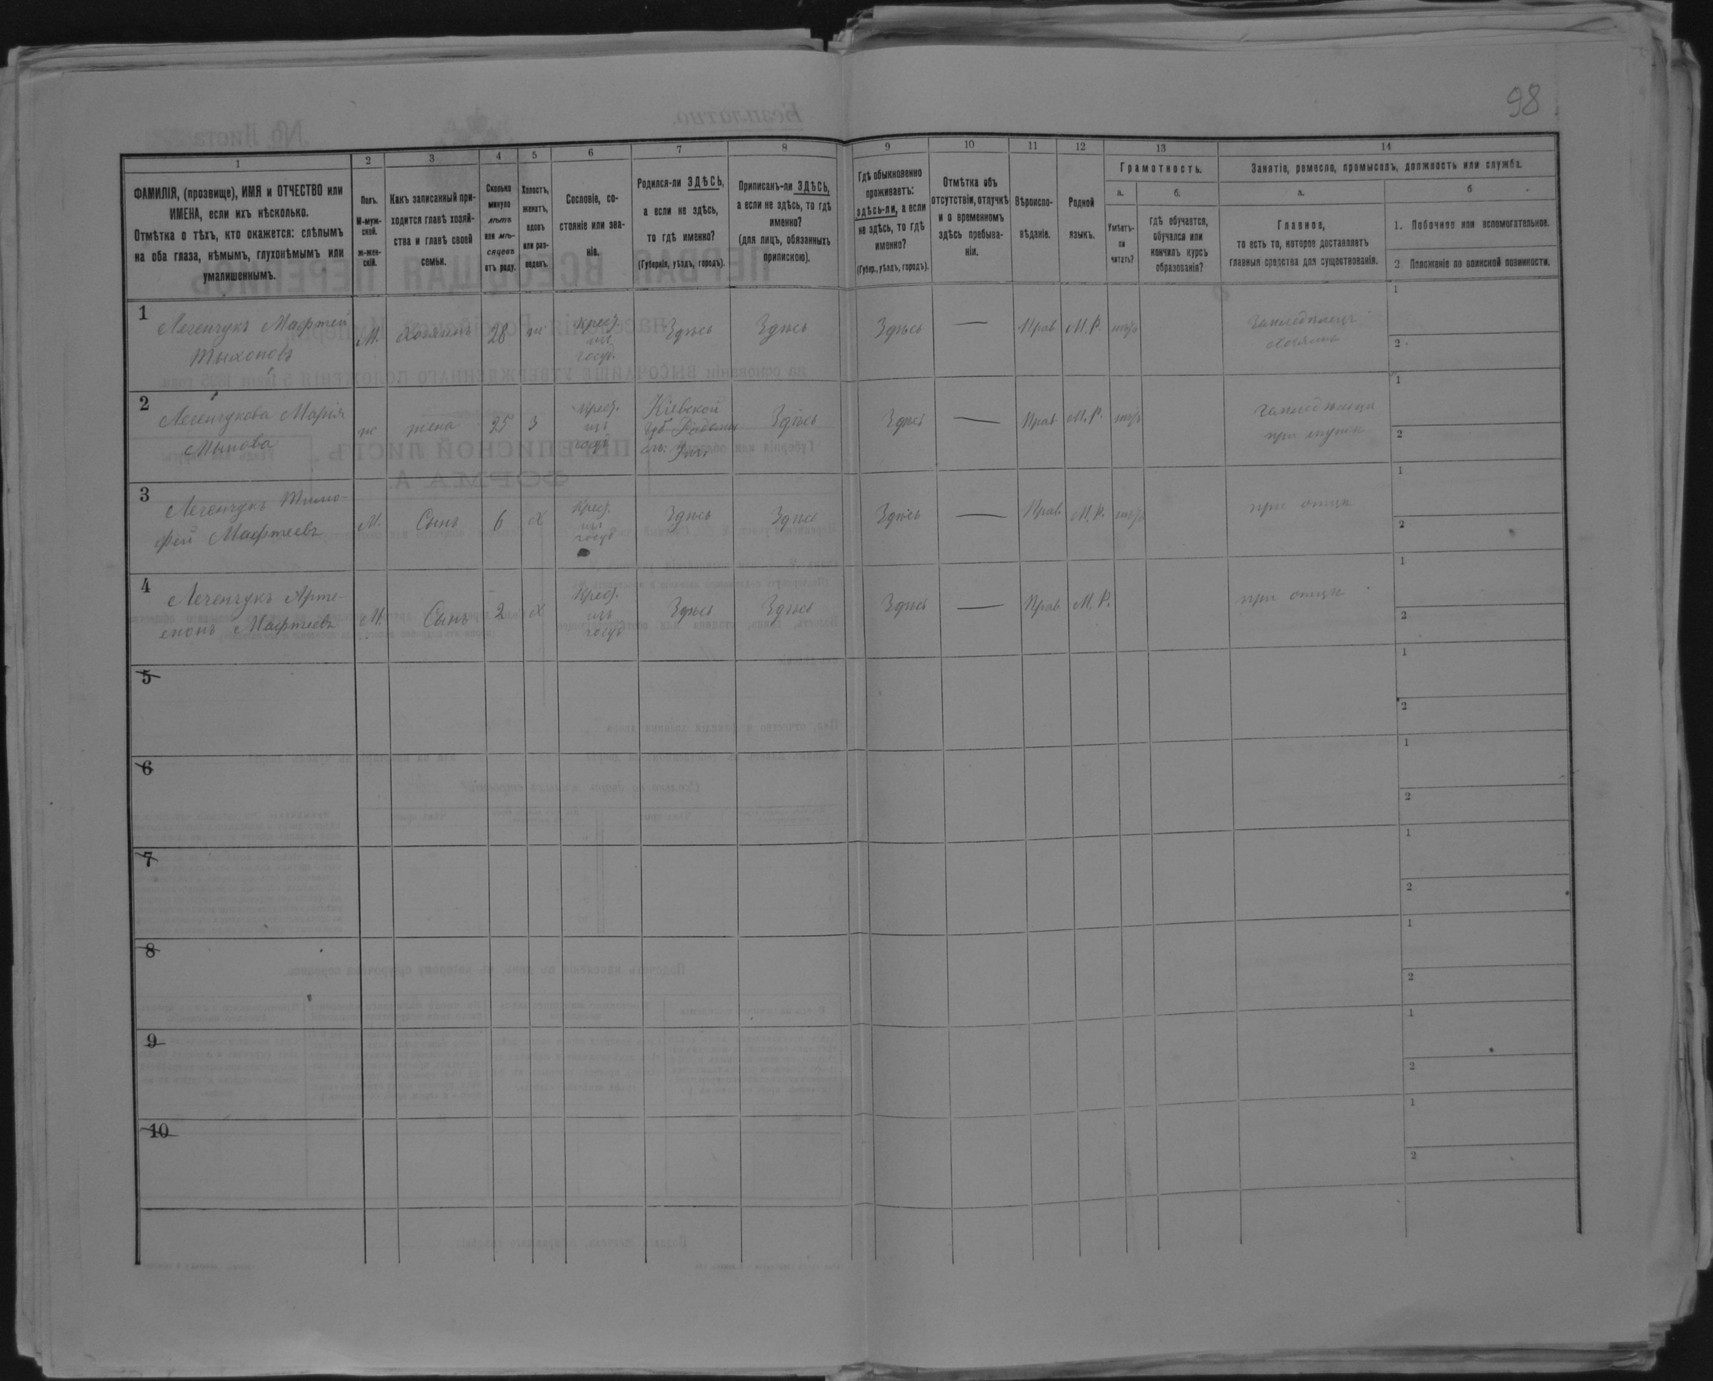 98
1 2 3 4 5 6 7 8 9 10 11 12 13 14
ФАМИЛІЯ, (прозвище), ИМЯ и ОТЧЕСТВО или
ИМЕНА, если ихъ нѣсколько.
Отмѣтка о тѣхъ, кто окажется: слѣпымъ
на оба глаза, нѣмымъ, глухонѣмымъ или
умалишеннымъ.
Полъ.
М-муж-
ской.
ж-жен-
скій.
Какъ записанный при-
ходится главѣ хозяй-
ства и главѣ своей
семьи.
Сколько
минуло
лѣтъ
или мѣ-
сяцевъ
отъ роду.
Холостъ,
женатъ,
вдовъ
или раз-
веденъ.
Сословіе, со-
стояніе или зва-
ніе.
Родился-ли ЗДѢСЬ,
а если не здѣсь,
то гдѣ именно?
(Губернія, уѣздъ, городъ).
Приписанъ-ли ЗДѢСЬ,
а если не здѣсь, то гдѣ
именно?
(для лицъ, обязанныхъ
припискою).
Гдѣ обыкновенно
проживаетъ:
здѣсь-ли, а если
не здѣсь, то гдѣ
именно?
(Губер., уѣздъ, городъ).
Отмѣтка объ
отсутствіи, отлучкѣ
и о временномъ
здѣсь пребыва-
ніи.
Вѣроиспо-
вѣданіе.
Родной
языкъ.
Грамотность.
а.
Умѣетъ-
ли
читать?
б.
гдѣ обучается,
обучался или
кончилъ курсъ
образованія?
Занятіе, ремесло, промыселъ, должность или служба.
а.
Главное,
то есть то, которое доставляетъ
главныя средства для существованія.
б
1. Побочное или вспомогательное.
2 Положеніе по воинской повинности.
1
Легенчукъ Мафтей
Тихоновъ
М.
Хозяинъ
28
ж
крест.
изъ
госуд.
Здѣсь
Здѣсь
Здѣсь
—
Прав.
М.Р.
Хозяинъ
1
2
2
Легенчукова Марія
ж
жена
25
З
крест.
изъ
госуд
Кіевской
губ
Здѣсь
Здѣсь
—
Прав.
М.Р.
при мужѣ
1
2
3
Легенчукъ Тимо-
фей Мафтеевъ
М.
Сынъ
6
Х
Крест.
изъ
госуд
Здѣсь
Здѣсь
Здѣсь
—
Прав
М.Р.
при отцѣ
1
2
4
Легенчукъ Арте-
монъ Мафтеевъ
М.
Сынъ
2
Х
Крест.
изъ
госуд
Здѣсь
Здѣсь
Здѣсь
—
Прав
М.Р.
при отцѣ
1
2
5
1
2
6
1
2
7
1
2
8
1
2
9
1
2
10
1
2